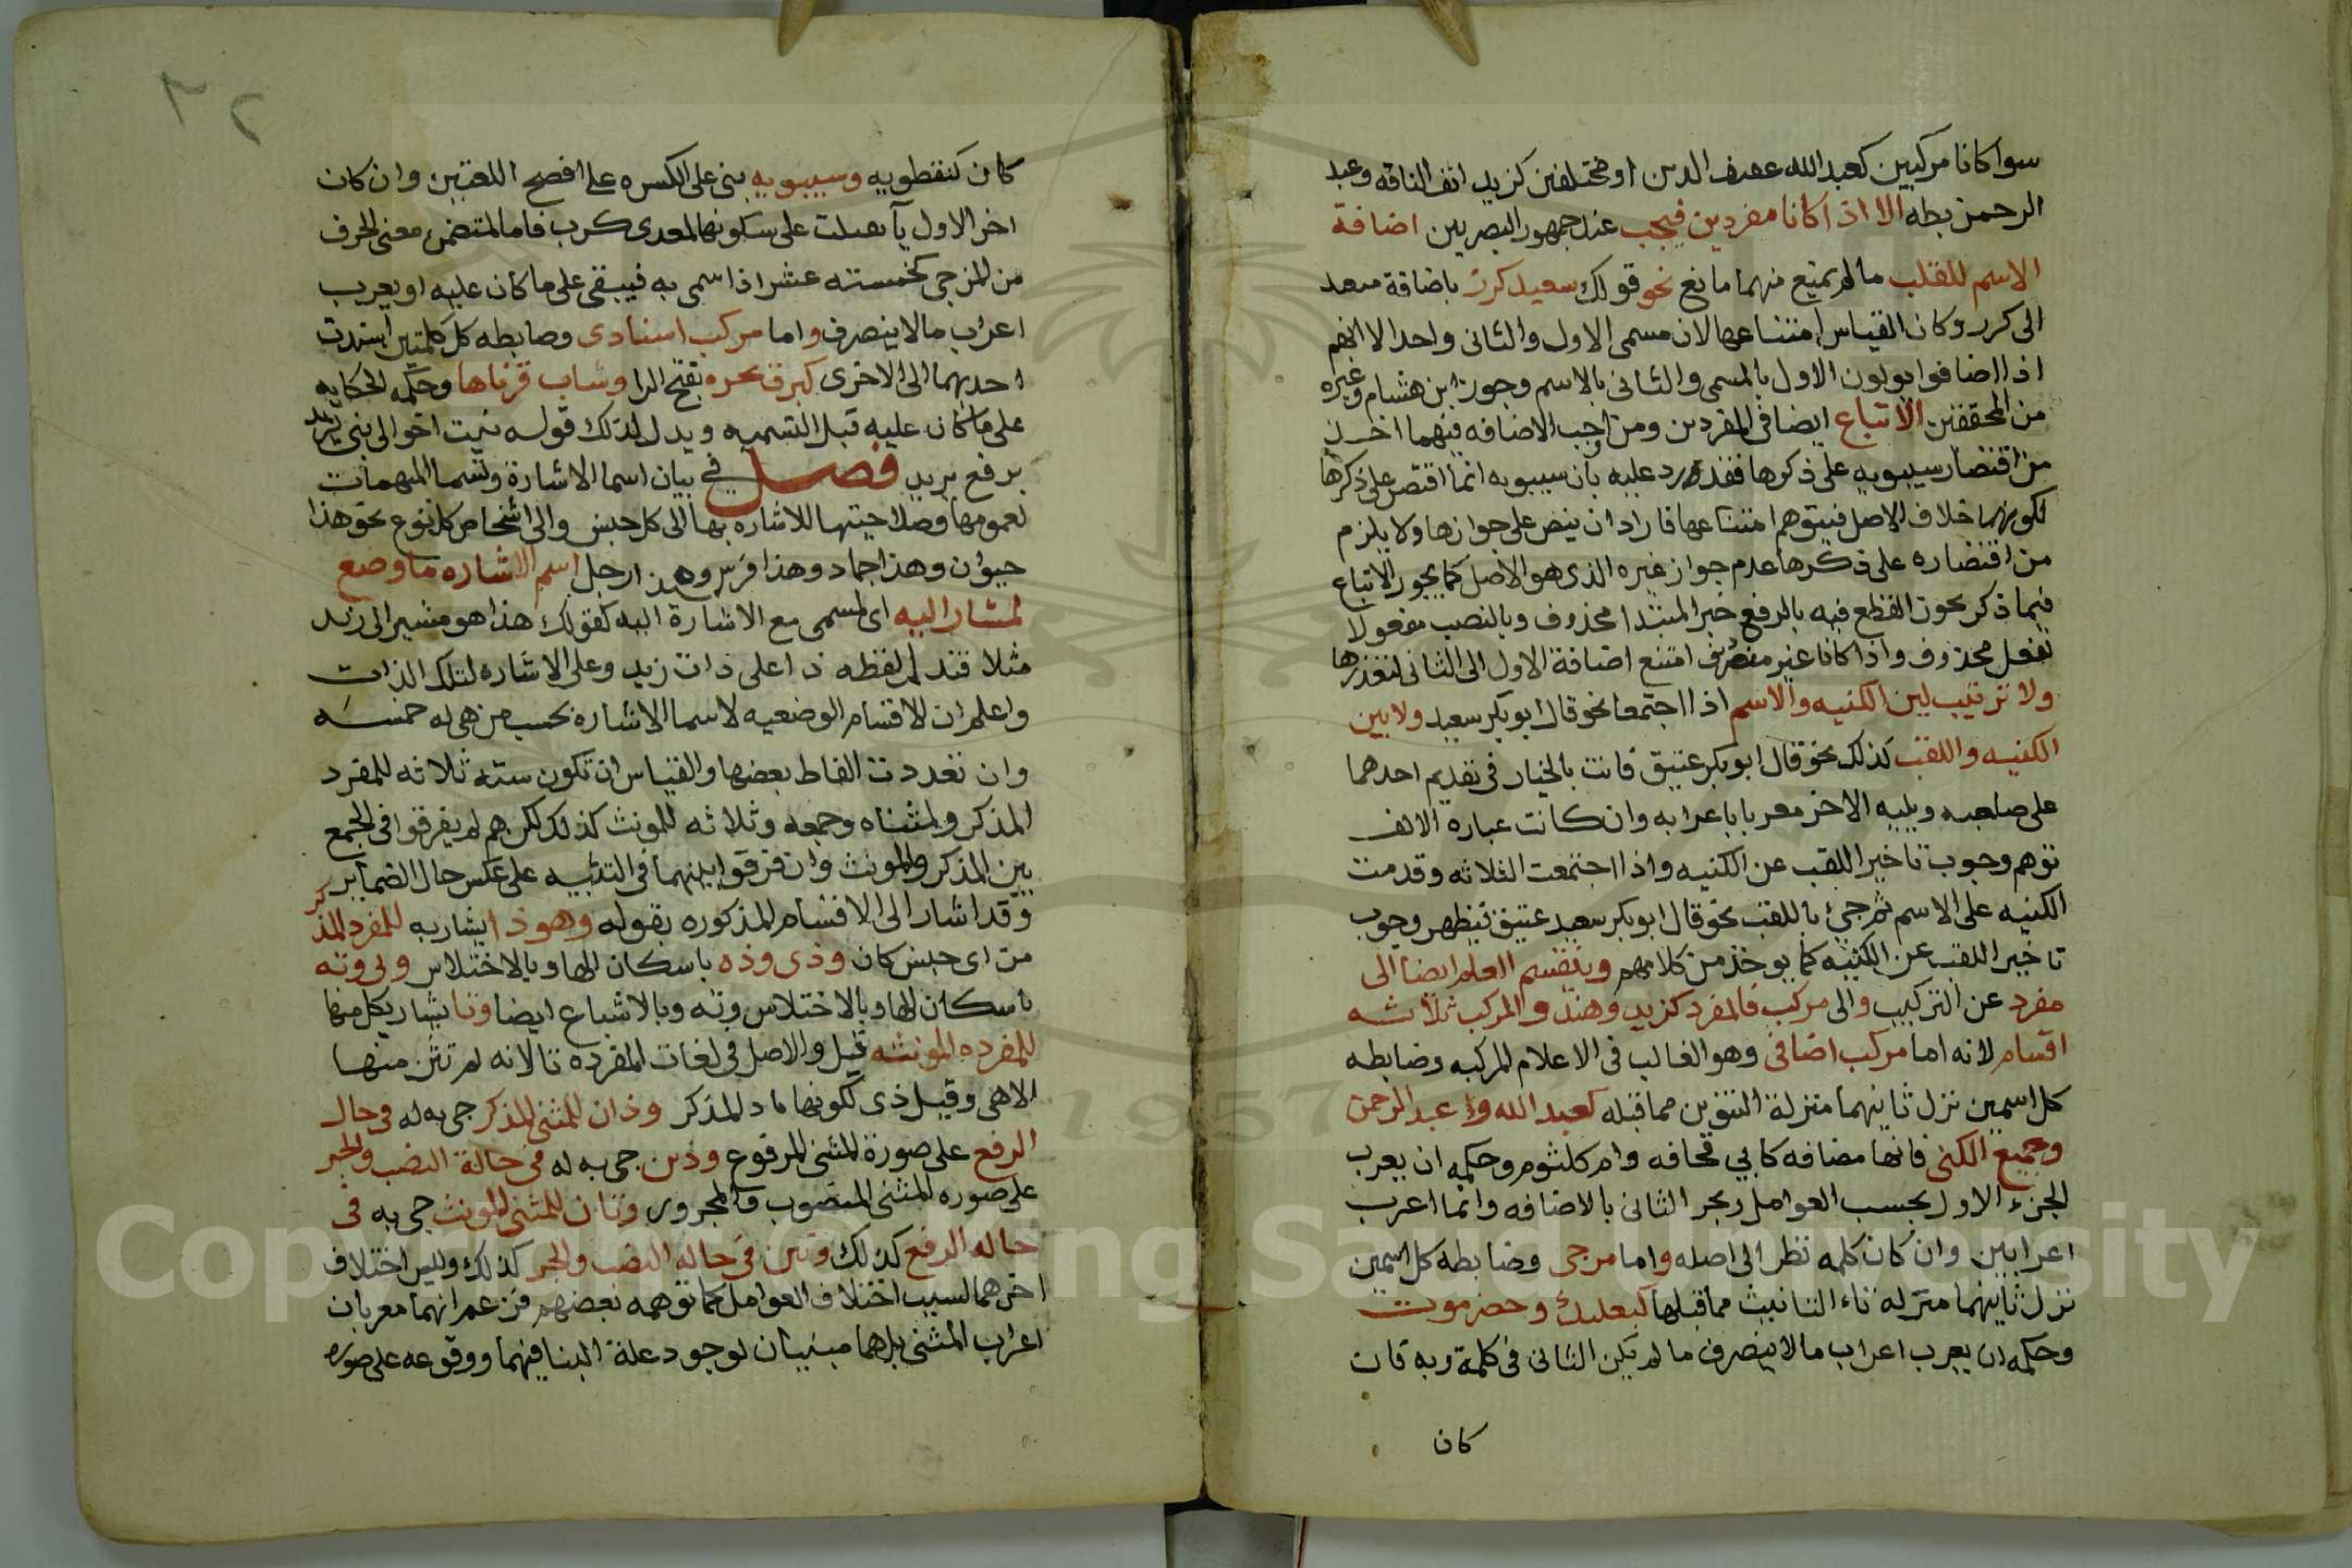 سوا كانا مركبين كعبد الله عفيف الدين او مختلفين كزيد انف الناقه وعبد
الرحمن بطه الا اذا كانا مفردين فيجب عند جمهور البصريين اضافة
الاسم للقلب ما لم يمنع منهما مانع نحو قولك سعيد كرز باضافة سعد
الى كرز وكان القياس امتناعها لان مسمى الاول والثانى واحد الا انهم
اذا اضافوا يولون الاول بالمسمى والثانى بالاسم وجوز ابن هشام وغيره
من المحققين الاتباع ايضا فى المفردين ومن اوجب الاضافه فيهما اخذ
من اقتصار سيبويه على ذكرها فقد رد عليه بان سيبويه انما اقتصر على ذكرها
لكونهما خلاف الاصل فيتوهم امتناعها فاراد ان ينص على جوازها ولا يلزم
من اقتصاره على ذكرها عدم جواز غيره الذى هو الاصل كما يجوز الاتباع
فيما ذكر يجوز القطع فيه بالرفع خبر المبتدا محذوف وبالنصب مفعولا
لفعل محذوف واذا كانا غير منصرف امتنع اضافة الاول الى الثانى لتعذرها
ولا ترتيب بين الكنيه والاسم اذا اجتمعا نحو قال ابو بكر سعيد ولا بين
الكنيه واللقب كذلك نحو قال ابو بكر عتيق فانت بالخيار فى تقديم احدهما
على صاحبه ويليه الاخر معربا باعرابه وان كانت عبارة الالف
توهم وجوب تاخير اللقب عن الكنيه واذا اجتمعت الثلاثه وقدمت
الكنيه على الاسم ثم جئ باللقب نحو قال ابو بكر سعيد عتيق فيظهر وجوب
تاخير اللقب عن الكنيه كما يوخذ من كلامهم وينقسم العلم ايضا الى
مفرد عن التركيب والى مركب فالمفرد كزيد وهند والمركب ثلاثه
اقسام لانه اما مركب اضافى وهو الغالب فى الاعلام المركبه وضابطه
كل اسمين نزل ثانيهما منزلة التنوين مما قبله كعبد الله وعبد الرحمن
وجميع الكنى فانها مضافه كابي قحافه وام كلثوم وحكمه ان يعرب
الجزء الاول بحسب العوامل ويجر الثانى بالاضافه وانما اعرب
اعرابين وان كان كلمه نظرا الى اصله واما مزجى وضابطه كل اسمين
نزل ثانيهما منزله تاء التانيث مما قبلها كبعلبك وحضرموت
وحكمه ان يعرب اعراب ما لا ينصرف ما لم يكن الثانى فى كلمة ويه فان
كان
كان كنفطويه وسيبويه بنى على الكسره على افصح اللغتين وان كان
اخر الاول يآ بعلت على سكونها لمعدى كرب فاما المتضمن معنى الحرف
من المزجى كخمسته عشر اذا سمى به فيبقى على ما كان عليه او يعرب
اعراب مالا ينصرف واما مركب اسنادى وضابطه كل كلمتين اسندت
احديهما الى الاخرى كبرق نحره بفتح الرا وشاب قرناها وحكمه الحكايه
على ما كان عليه قبل التسميه ويدل لذلك قوله نبئت اخوالى بنى يزيد
برفع يزيد فصل في بيان اسما الاشارة وتسما المبهمات
لعمومها وصلاحيتها للاشاره بها الى كل جنس والى اشخاص كل نوع نحو هذا
حيوان وهذا جماد وهذا فرس وهذا رجل اسم الاشاره ما وضع
لمشار اليه اى لمسمى مع الاشارة اليه كقولك هذا هو مشير الى زيد
مثلا فتدل لفظه ذا على ذات زيد وعلى الاشاره لتلك الذات
واعلم ان الاقسام الوضعيه لاسما الاشاره بحسب من هى له خمسه
وان تعددت الفاظ بعضها والقياس ان تكون سته ثلاثه للمفرد
المذكر ولمثناه وجمعه وثلاثه للمونث كذلك لكنهم لم يفرقوا فى الجمع
بين المذكر والمونث وان فرقوا بينهما فى التثنيه على عكس حال الضمائر
وقد اشار الى الاقسام المذكوره بقوله وهو ذا يشار به للمفرد المذكر
من اى جنس كان وذى وذه باسكان الها وبالاختلاس وتى وته
باسكان الها وبالاختلاس وته وبالاشباع ايضا وتا يشار بكل منها
للمفرده المونثه قيل والاصل فى لغات المفرده تا لانه لم تثن منها
الا هى وقيل ذى لكونها ما د للمذكر وذان للمثنى المذكر جى به له فى حال
الرفع على صورة المثنى المرفوع وذين جى به له فى حالة النصب والجر
على صوره المثنى المنصوب والمجرور وتان للمثنى المونث جى به فى
حاله الرفع كذلك وتين فى حاله النصب والجر كذلك وليس اختلاف
اخرهما لسبب اختلاف العوامل كما توهمه بعضهم فزعم انهما معربان
اعراب المثنى بل هما مبنيان لوجود علة البنا فيهما ووقوعه على صوره